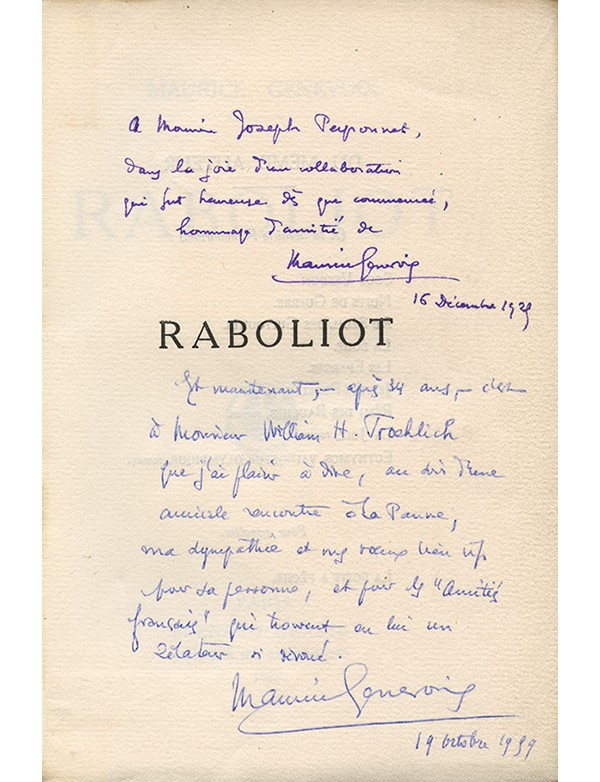 A Monsieur Joseph Peyronnet,
dans la joie d'une collaboration
qui fut heureuse dès que commencée,
hommage d'amitié de
Maurice Genevoix
16 Décembre 1925
RABOLIOT
Et maintenant, — après 34 ans, — c'est
à Monsieur William H. Troehlich
que j'ai plaisir à dire, au soir d'une
amicale rencontre à La Panne,
ma sympathie et mes vœux bien vifs
pour sa personne, et pour les "Amitiés
françaises" qui trouvent en lui un
zélateur si dévoué.
Maurice Genevoix
19 octobre 1959